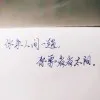 你来人间一趟，
你要看看太阳。